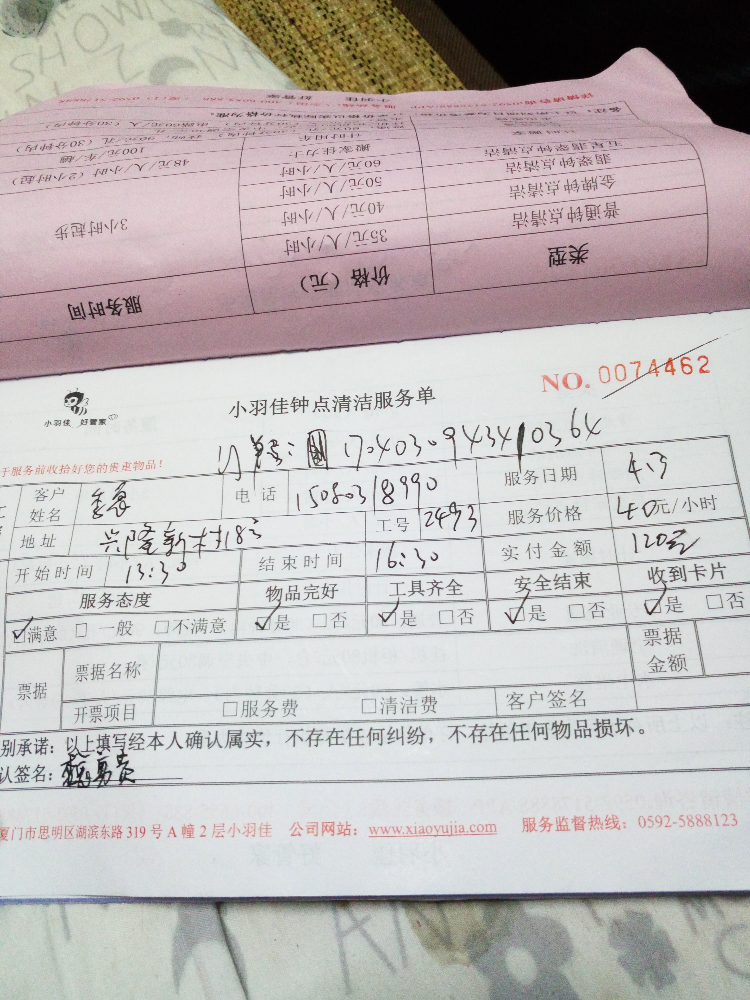 类型 价格(元) 服务时间
普通钟点清洁 35元/人/小时 3小时起步
金牌钟点清洁 40元/人/小时
翡翠钟点清洁 50元/人/小时
五星翡翠钟点清洁 60元/人/小时
搬家佳力士 48元/人/小时(2小时起)
100元/车/趟
小羽佳 好管家
小羽佳钟点清洁服务单
NO. 0074462
于服务前收拾好您的贵重物品!
170403094341 0364
客户姓名 电话 15080318990 服务日期 4.3
地址 兴隆新村18号 工号 2493 服务价格 40元/小时
开始时间 13:30 结束时间 16:30 实付金额 120元
服务态度 物品完好 工具齐全 安全结束 收到卡片
☑满意 □一般 □不满意 ☑是 □否 ☑是 □否 ☑是 □否 ☑是 □否
票据 票据名称 票据金额
开票项目 □服务费 □清洁费 客户签名
别承诺:以上填写经本人确认属实,不存在任何纠纷,不存在任何物品损坏。
认签名:
厦门市思明区湖滨东路 319 号 A 幢 2 层小羽佳 公司网站:www.xiaoyujia.com 服务监督热线:0592-5888123